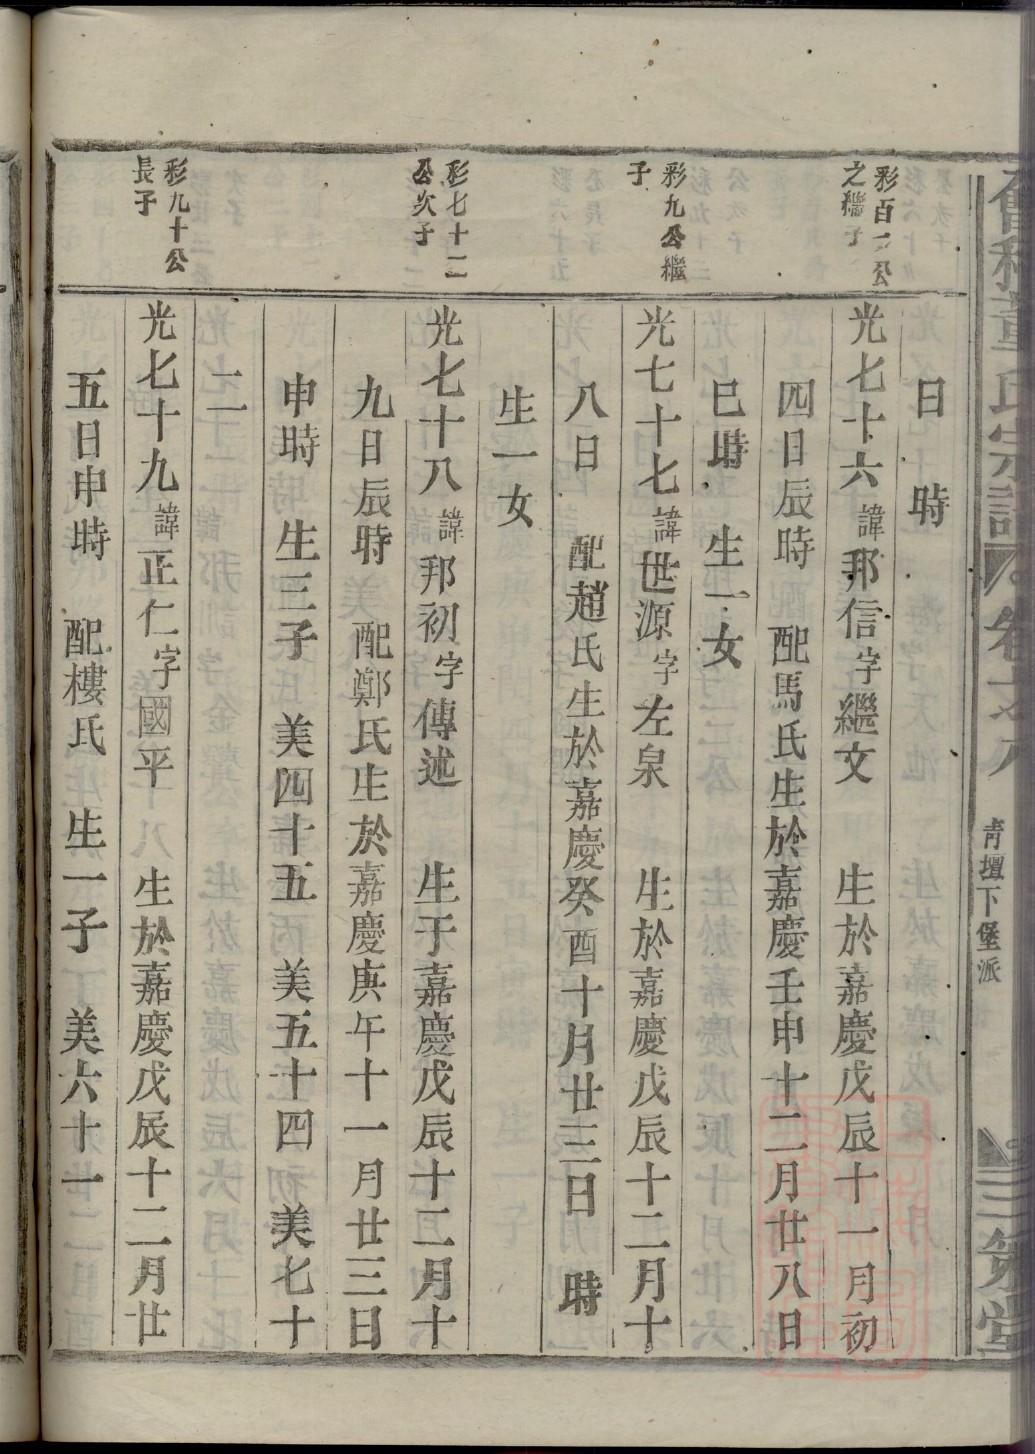 董氏宗譜 卷之八 青壇下堡派 三策堂
日 時
彩百一公
之繼子
光七十六諱邦信字繼文 生於嘉慶戊辰十一月初
四日辰時 配馬氏生於嘉慶壬申十二月廿八日
巳時 生一女
彩九公繼
子
光七十七諱世源字左泉 生於嘉慶戊辰十二月十
八日 配趙氏生於嘉慶癸酉十月廿三日 時
生一女
彩七十二
公次子
光七十八諱邦初字傳述 生于嘉慶戊辰十二月十
九日辰時 配鄭氏生於嘉慶庚午十一月廿三日
申時 生三子 美四十五 美五十四 美七十
二
彩九十公
長子
光七十九諱正仁字國平 生於嘉慶戊辰十二月廿
五日申時 配樓氏 生一子 美六十一